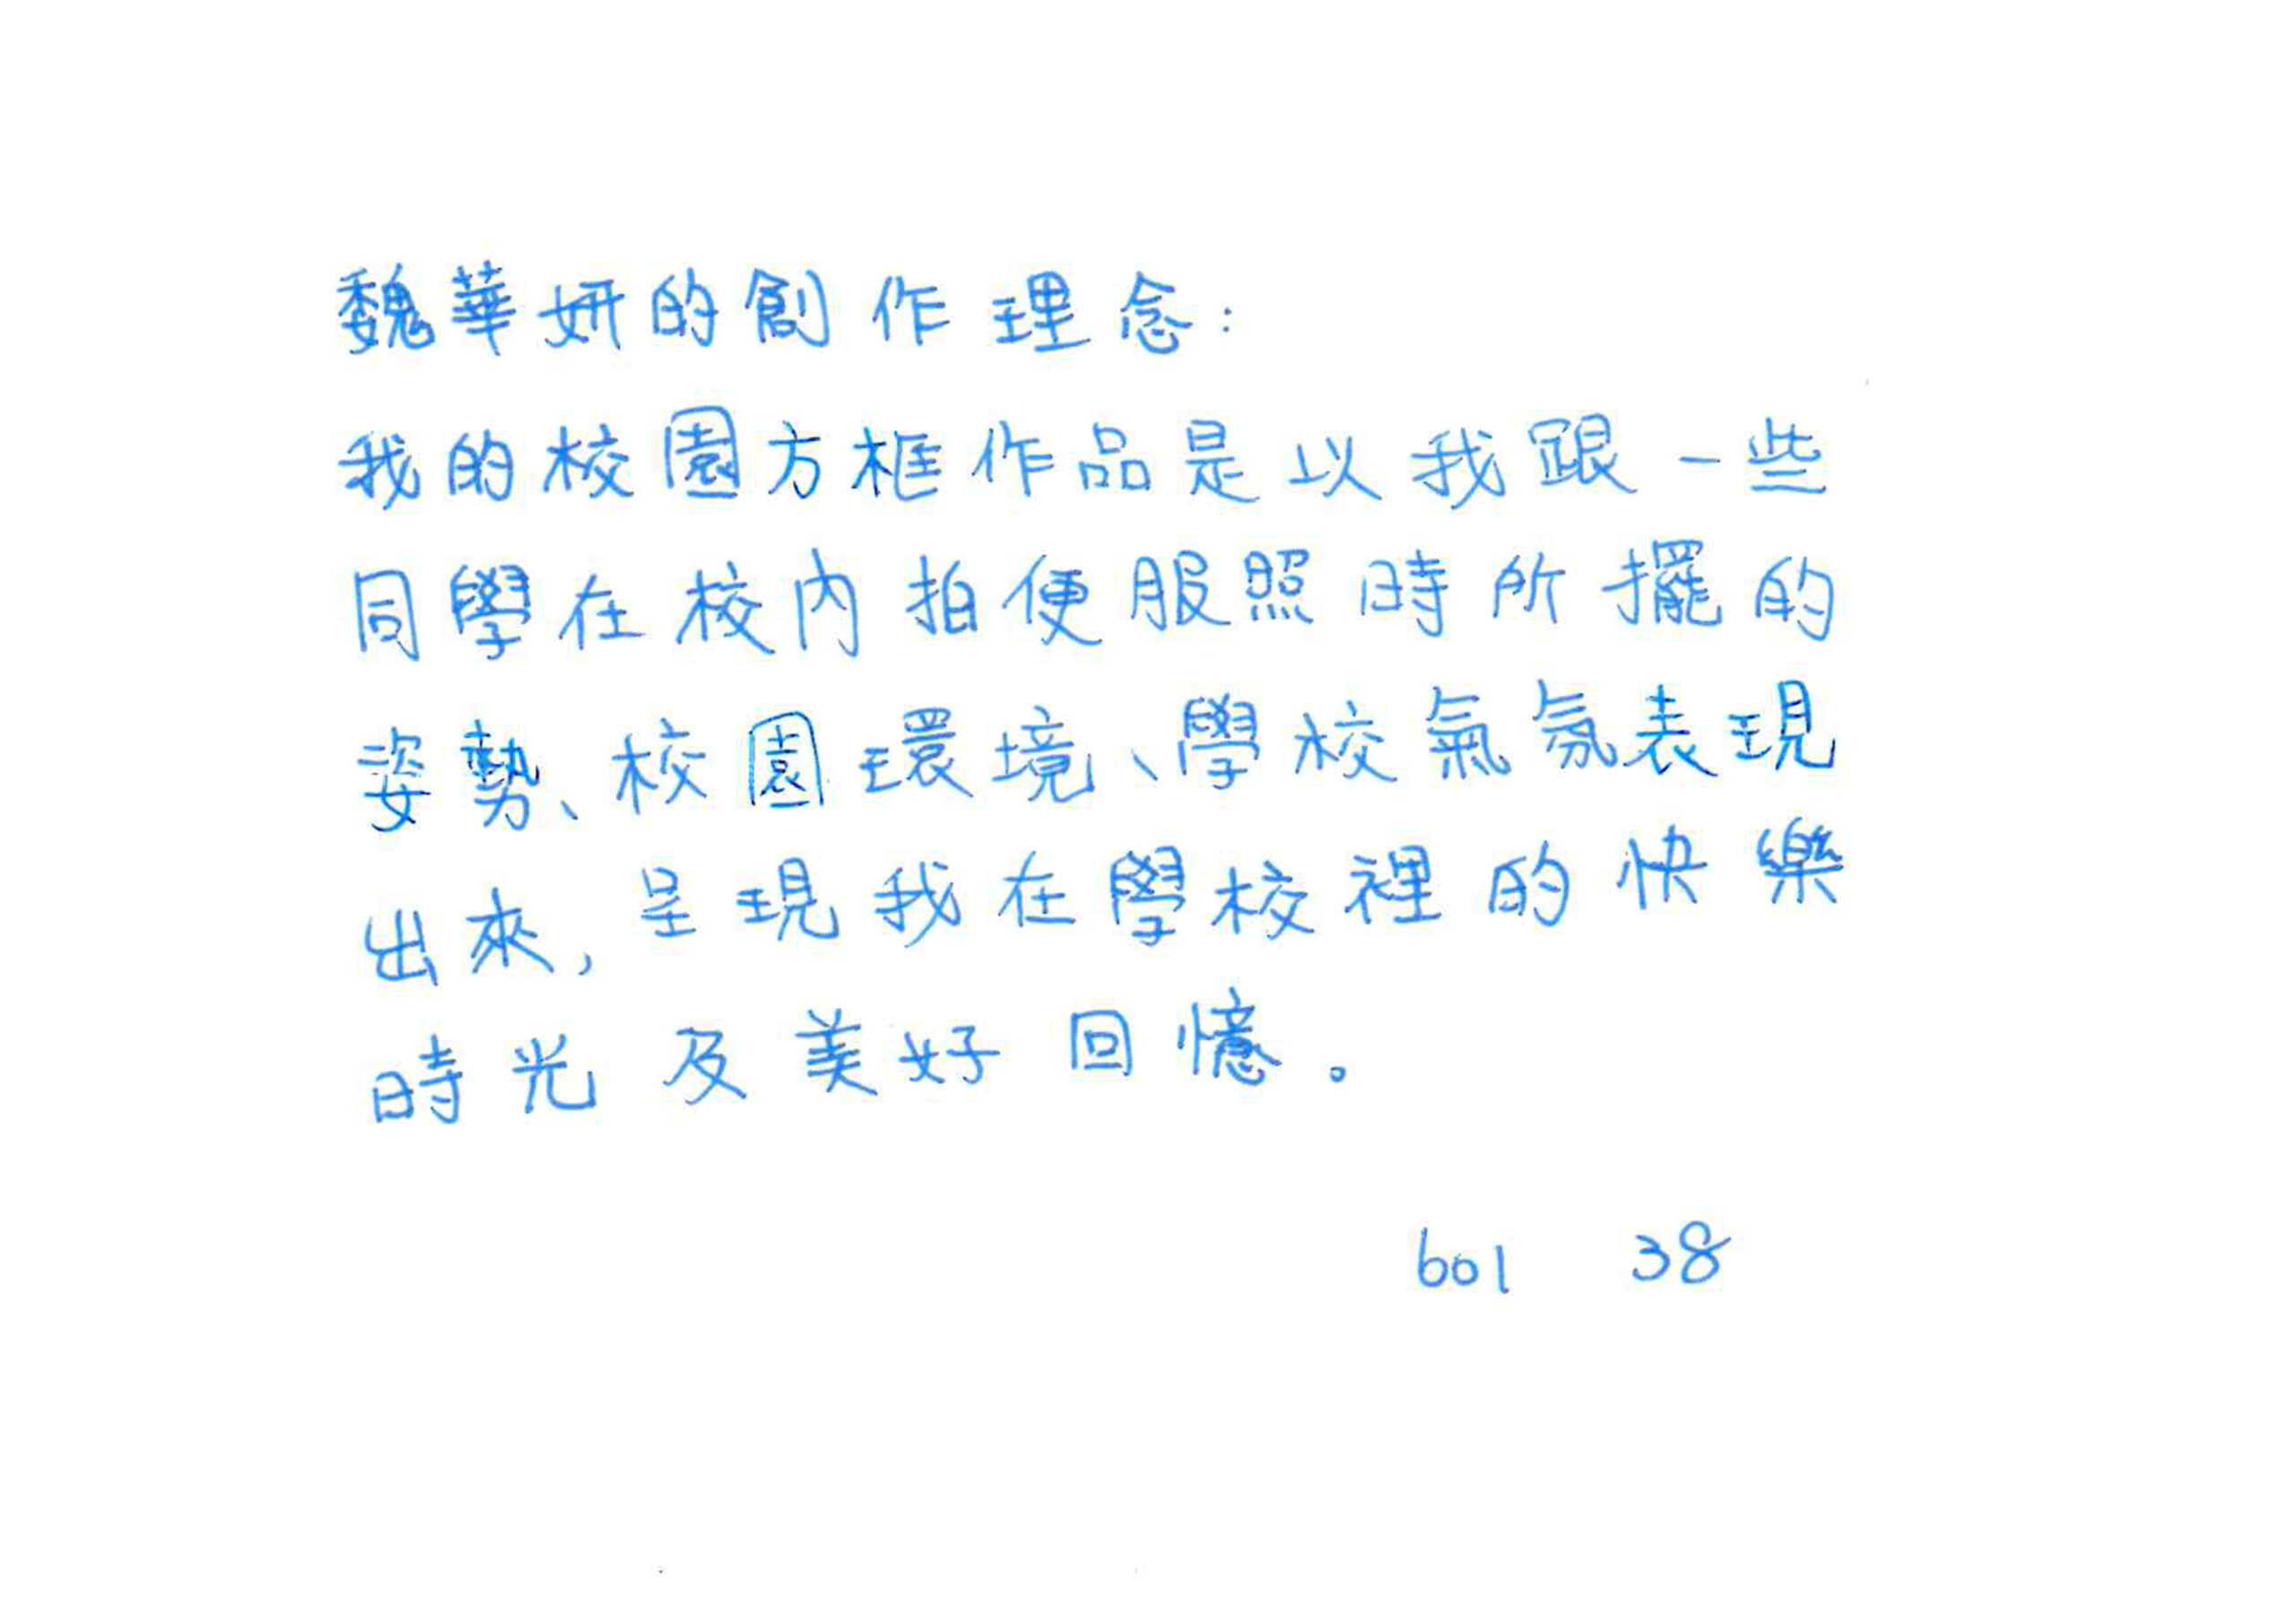 魏華妍的創作理念：
我的校園方框作品是以我跟一些
同學在校內拍便服照時所擺的
姿勢、校園環境、學校氣氛表現
出來，呈現我在學校裡的快樂
時光及美好回憶。
601 38